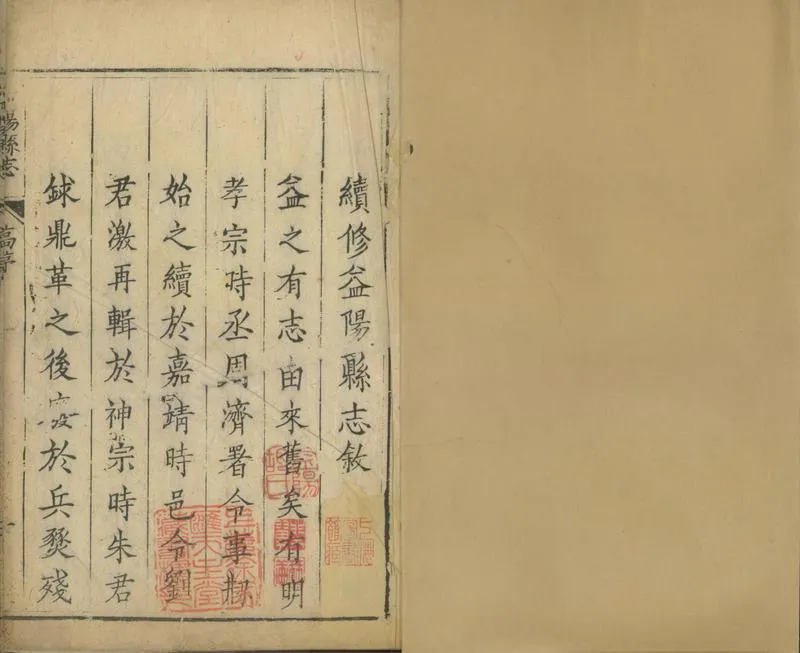 續修益陽縣志敘
益之有志由來舊矣有明
孝宗時丞周濟署令事刱
始之續於嘉靖時邑令劉
君激再輯於神宗時朱君
銶鼎革之後 於兵燹殘
陽縣志